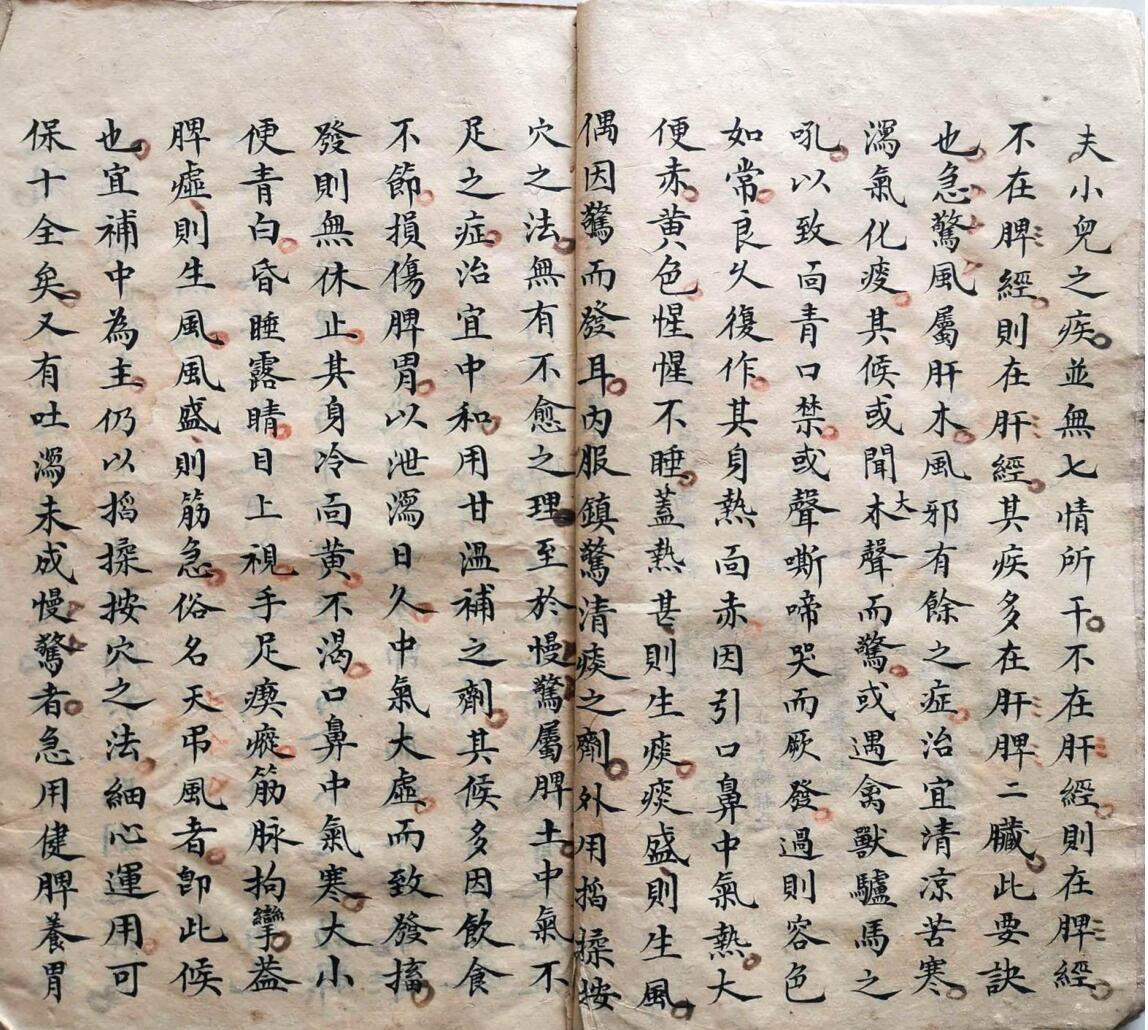 夫小兒之疾並無七情所干不在肝經則在脾經
不在脾經則在肝經其疾多在肝脾二臟此要訣
也急驚風屬肝木風邪有餘之症治宜清凉苦寒
瀉氣化痰其候或聞木大聲而驚或遇禽獸驢馬之
吼以致面青口禁或聲嘶啼哭而厥發過則容色
如常良久復作其身熱面赤因引口鼻中氣熱大
便赤黃色惺惺不睡蓋熱甚則生痰痰盛則生風
偶因驚而發耳内服鎮驚清痰之劑外用搯揉按
穴之法無有不愈之理至於慢驚屬脾土中氣不
足之症治宜中和用甘溫補之劑其候多因飲食
不節損傷脾胃以泄瀉日久中氣大虛而致發搐
發則無休止其身冷面黃不渴口鼻中氣寒大小
便青白昏睡露睛目上視手足瘈瘲筋脉拘攣葢
脾虛則生風風盛則筋急俗名天吊風者卽此候
也宜補中為主仍以搯揉按穴之法細心運用可
保十全矣又有吐瀉未成慢驚者急用健脾養胃